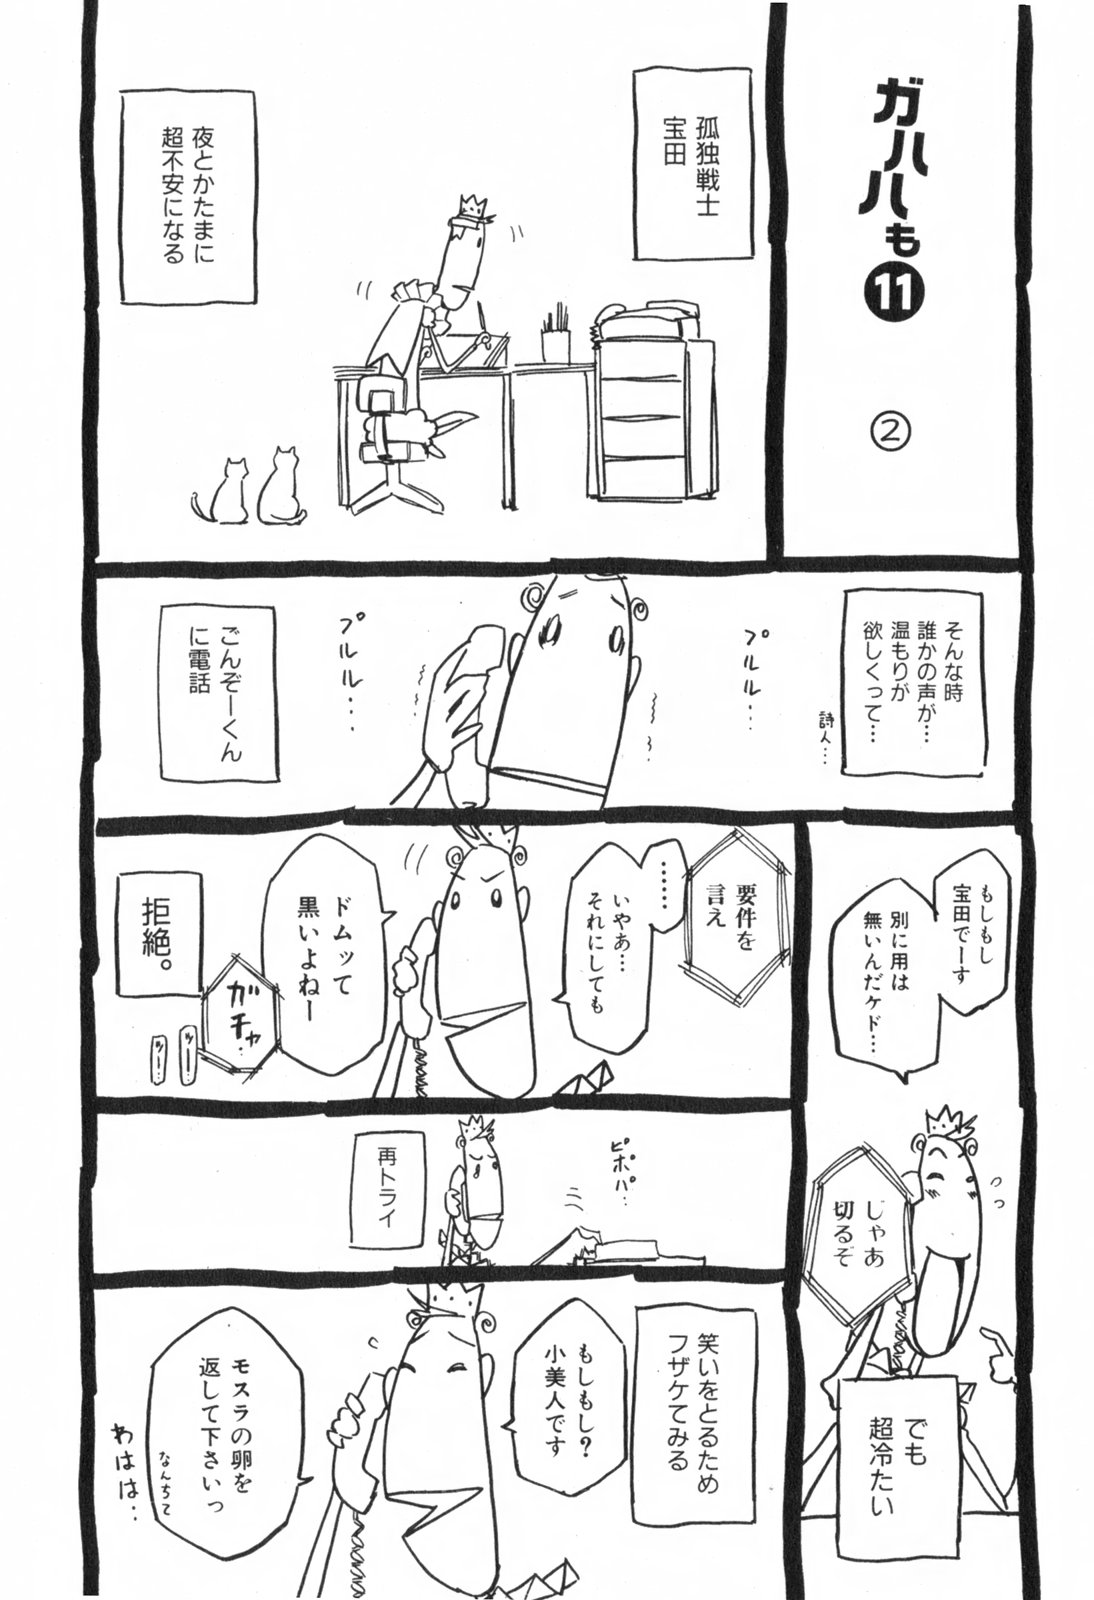 ガハハも⓫
②
孤独戦士
宝田
夜とかたまに
超不安になる
そんな時
誰かの声が…
温もりが
欲しくって…
詩人…
プルルル…
プルルル…
ごんぞーくん
に電話
もしもし
宝田でーす
別に用は
無いんだケド…
じゃあ
切るぞ
でも
超冷たい
要件を
言え
……
いやあ…
それにしても
ドムッて
黒いよねー
ガチャ
ツー…
ツー…
拒絶。
ピポパ…
再トライ
笑いをとるため
フザケてみる
もしもし?
小美人です
モスラの卵を
返して下さいっ
なんちて
わはは…